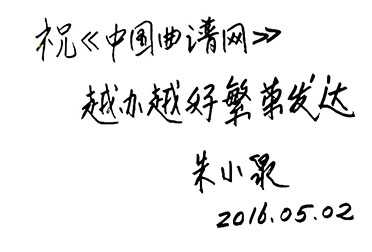 祝《中国曲谱网》
越办越好繁荣发达
朱小泉
2016.05.02